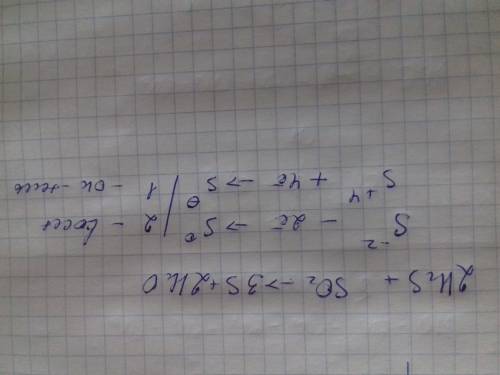 2H₂S + SO₂ -> 3S + 2H₂O
S⁻² - 2ē -> S⁰ | 2 - восст
S⁺⁴ + 4ē -> S⁰ | 1 - ок-тель